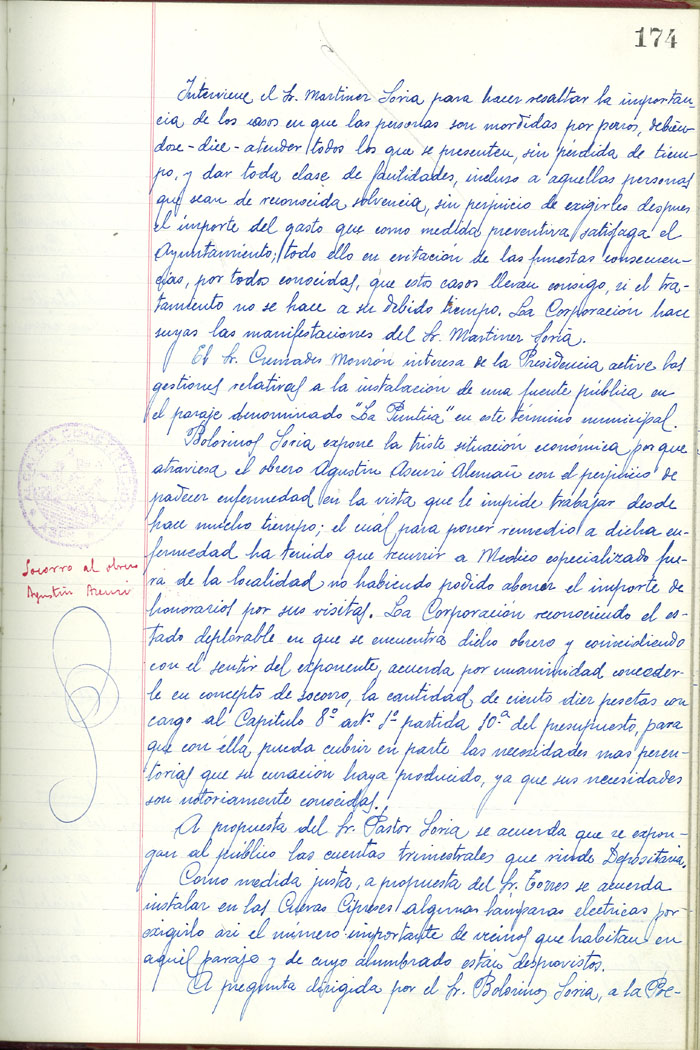 174
Interviene el Sr. Martinez Soria para hacer resaltar la importan-
cia de los casos en que las personas son mordidas por perros, debién-
dose - dice - atender todos los que se presenten, sin pérdida de tiem-
po, y dar toda clase de facilidades, incluso a aquellas personas
que sean de reconocida solvencia, sin perjuicio de exigirles despues
el importe del gasto que como medida preventiva satisfaga el
Ayuntamiento; todo ello en evitación de las funestas consecuen-
cias, por todos conocidas, que estos casos llevan consigo, si el tra-
tamiento no se hace a su debido tiempo. La Corporación hace
suyas las manifestaciones del Sr. Martinez Soria.
El Sr. Cremades Monzón interesa de la Presidencia active las
gestiones relativas a la instalación de una fuente pública en
el paraje denominado "La Puntica" en este término municipal.
Bolorinos Soria expone la triste situación económica por que
atraviesa el obrero Agustin Asensi Alemañ con el perjuicio de
padecer enfermedad en la vista que le impide trabajar desde
hace mucho tiempo; el cuál para poner remedio a dicha en-
fermedad ha tenido que recurrir a Medico especializado fue-
ra de la localidad no habiendo podido abonar el importe de
honorarios por sus visitas. La Corporación reconociendo el es-
tado deplorable en que se encuentra dicho obrero y coincidiendo
con el sentir del exponente, acuerda por unanimidad conceder-
le en concepto de socorro, la cantidad de ciento diez pesetas con
cargo al Capitulo 8º artº 1º partida 10.ª del presupuesto, para
que con ella pueda cubrir en parte las necesidades mas peren-
torias que su curación haya producido, ya que sus necesidades
son notoriamente conocidas.
A propuesta del Sr. Pastor Soria se acuerda que se expon-
gan al público las cuentas trimestrales que rinde Depositaria.
Como medida justa, a propuesta del Sr. Torres se acuerda
instalar en las Cuevas Cipreses algunas lámparas electricas por
exigirlo asi el número importante de vecinos que habitan en
aquel paraje y de cuyo alumbrado estan desprovistos.
A pregunta dirigida por el Sr. Bolorinos Soria, a la Pre-
ALCALDIA CONSTITUCIONAL
Socorro al obrero
Agustin Asensi